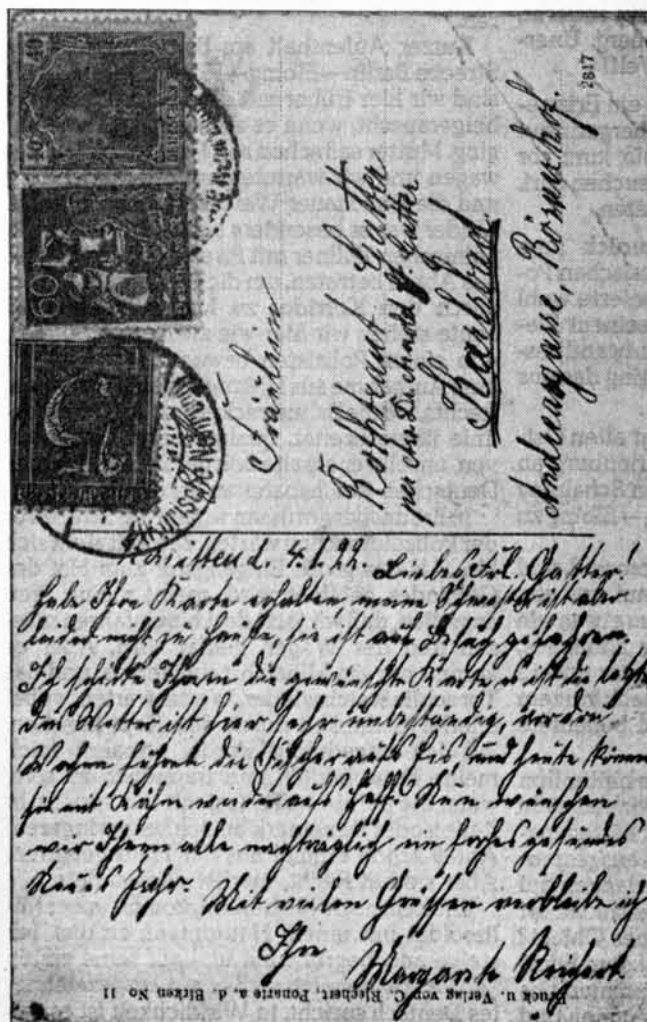 40
40
60
KURISCHE N
Fräulein
Rothraut Gatter
per Adr. Dachnald Gatter
Karlsbad
Andreasgasse, Römerhof.
2847
4.1.22. Liebes Frl. Gatter!
Habe Ihre Karte erhalten, meine Schwester ist aber
leider nicht zu Hause, sie ist auf Besuch gefahren.
Ich schicke Ihnen die gewünschte Karte es ist die letzte
Das Wetter ist hier sehr unbeständig, vor den
Wochen fuhren die Fischer aufs Eis, und heute können
sie mit Kähn wieder aufs Haff. Nun wünschen
wir Ihnen alle nachträglich ein frohes gesundes
Neues Jahr. Mit vielen Grüssen verbleibe ich
Ihre
Margarete Reichert
Druck u. Verlag von C. Riechert, Ponarte a. d. Birken No 11